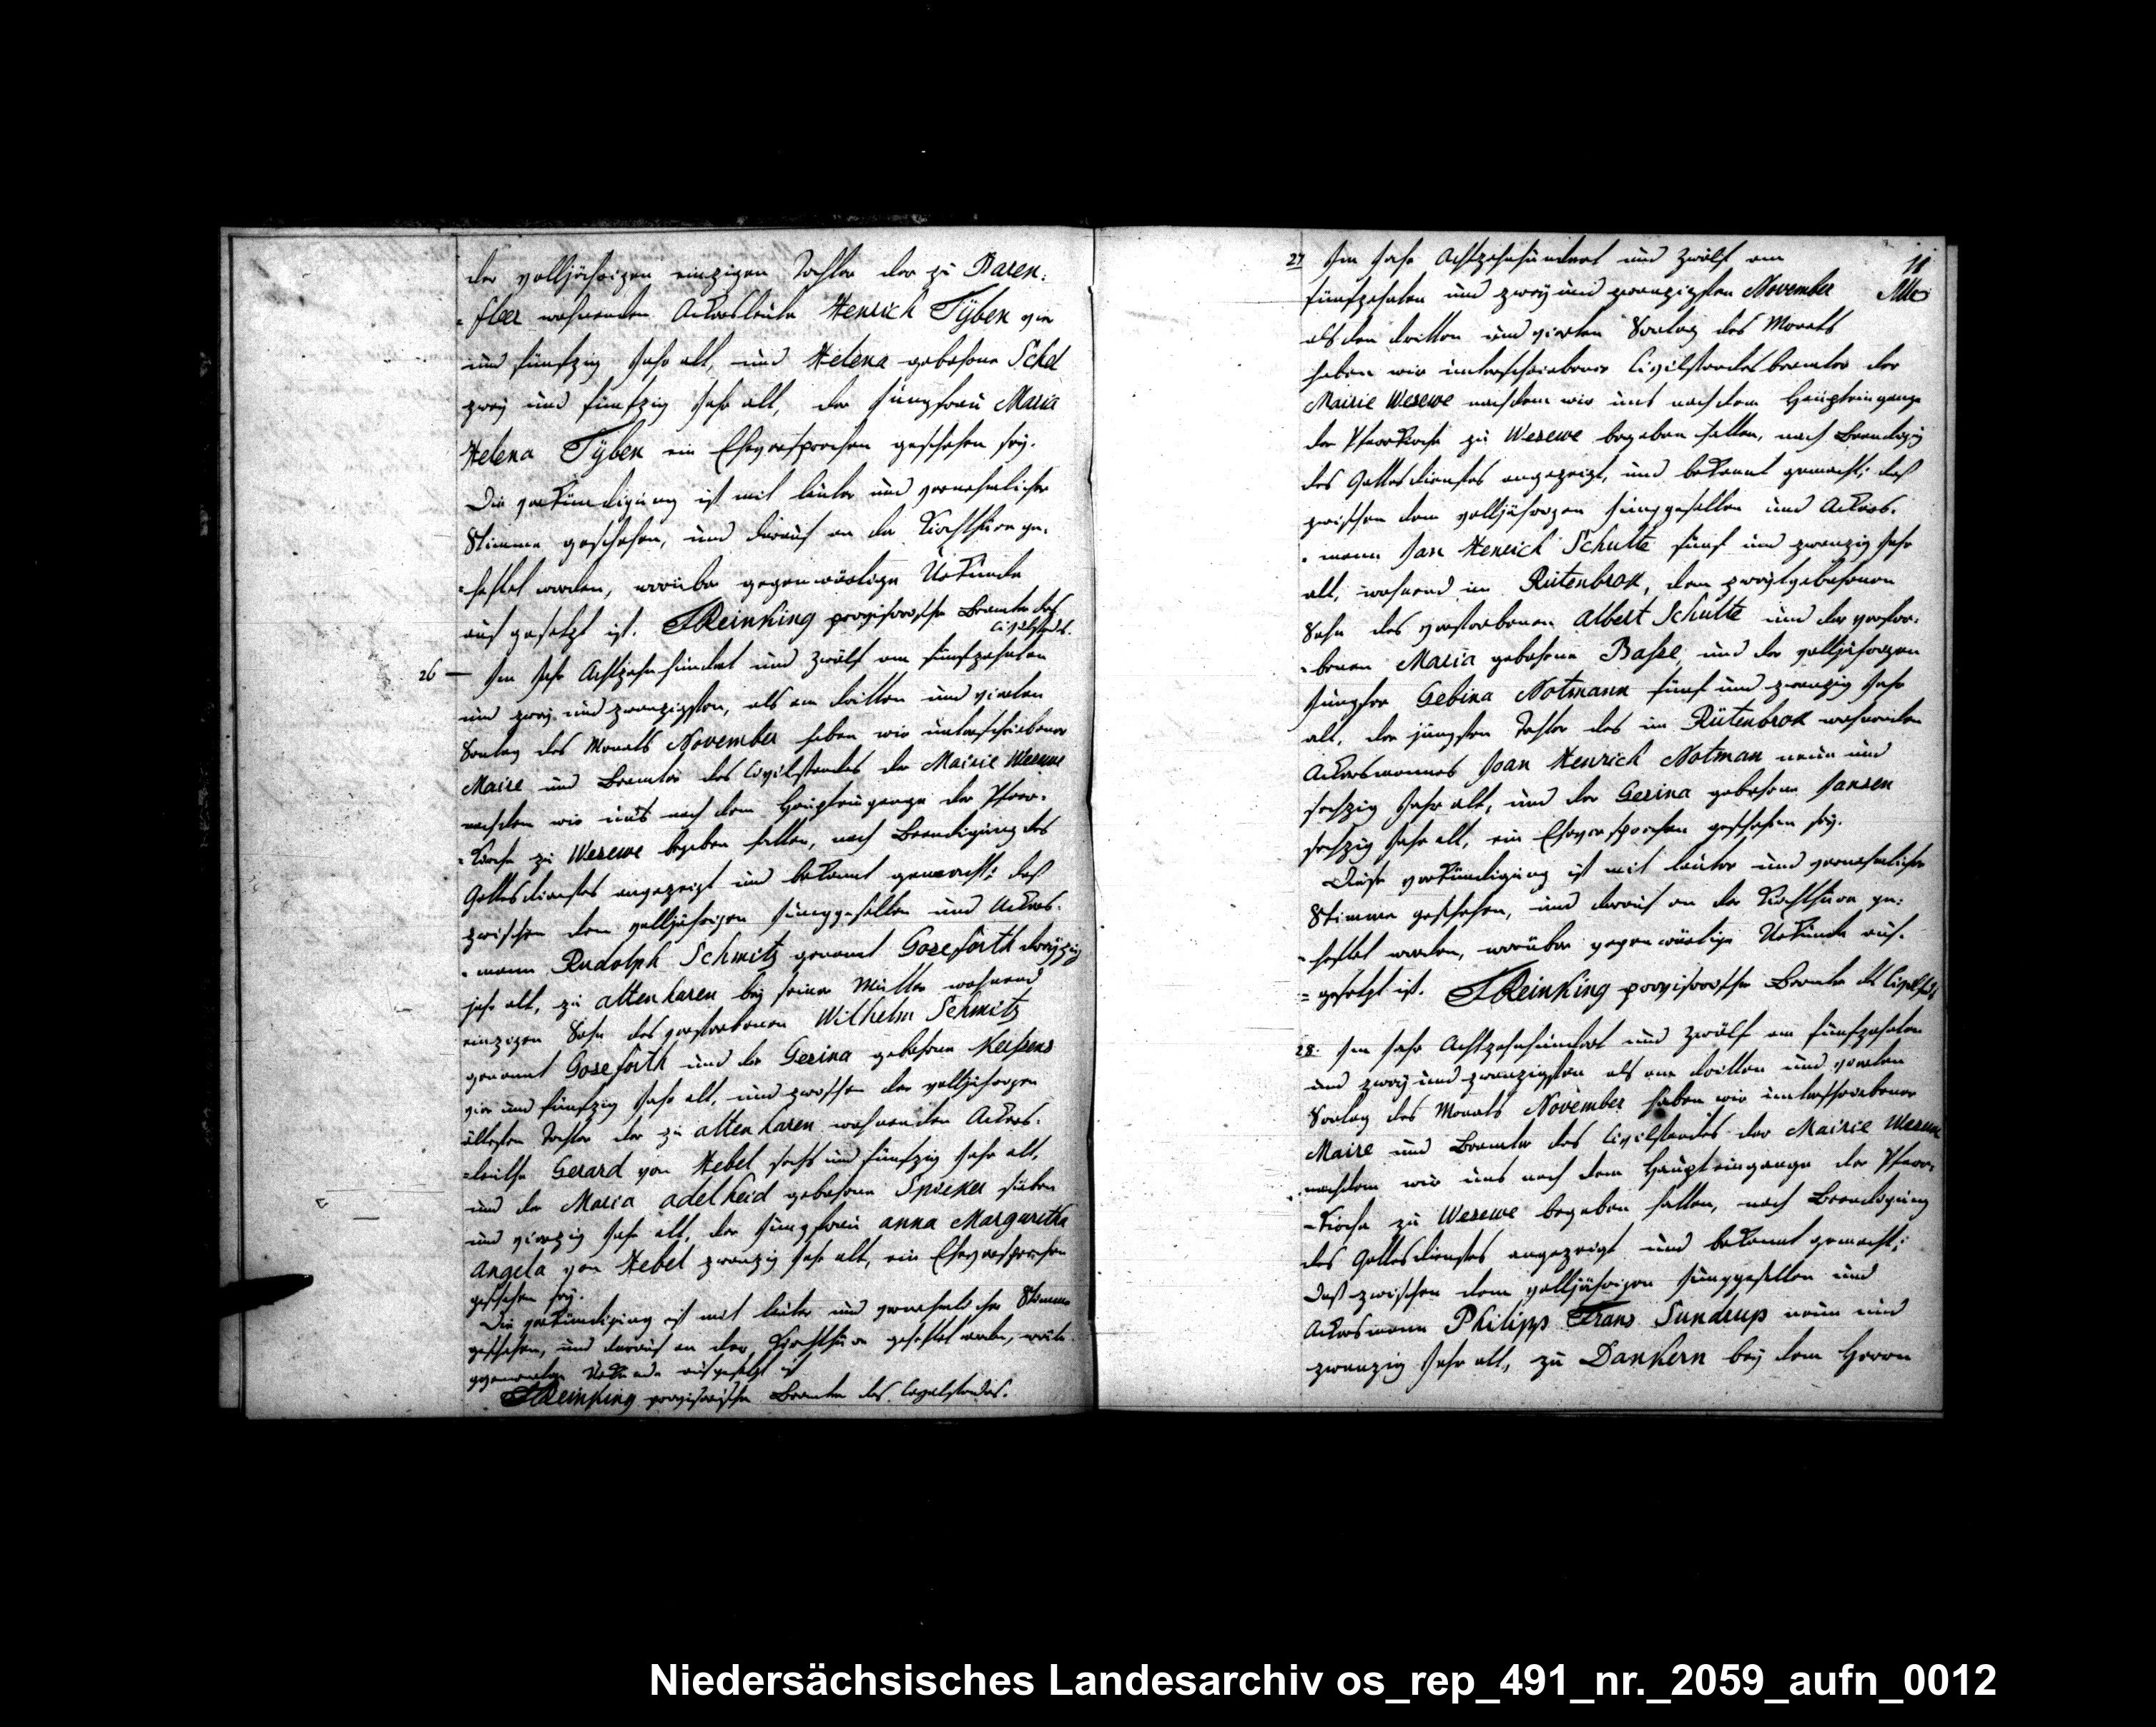 der volljährigen einzigen Tochter der zu Baren:
-fleer wohnenden Ackersleute Henrich Tÿben vier
und fünfzig Jahr alt, und Helena gebohrne Schel
zwey und fünfzig Jahr alt, der Jungfrau Maria
Helena Tÿben ein Eheversprechen geschehen sey.
Die verkündigung ist mit lauter und vernehmlicher
Stimme geschehen, und darauf an der Kirchthüre ge-
-heftet worden, worüber gegenwärtige Urkunde
aus gesetzt ist. Reinking provisorischer Beamter des
Civilstands.
26 — Im Jahr Achtzehnhundert und Zwölf am fünfzehnten
und zwey und zwanzigsten, als am dritten und vierten
Sontag des Monats November haben wir unterschriebener
Maire und Beamter des Civilstandes der Mairie Wesuwe
nachdem wir uns nach dem Haupteingange der Pfarr-
-kirche zu Wesewe begeben hatten, nach Beendigung des
Gottesdienstes angezeigt und bekannt gemacht; daß
zwischen dem volljährigen Junggesellen und Ackers-
-mann Rudolph Schmitz genannt Goseforth dreyzig
jahr alt, zu altenharen bey seiner Mutter wohnend
einzigen Sohn des verstorbenen Wilhelm Schmitz
genannt Goseforth und der Gesina gebohrne
vier und fünfzig Jahr alt, und zwischen der volljährigen
ältesten Tochter der zu altenharen wohnenden Ackers-
-leuthe Gerard von Hebel sechs und fünfzig Jahr alt,
und der Maria adelheid gebohrne Spieker sieben
und vierzig Jahr alt, der Jungfrau anna Margaretha
Angela von Hebel zwanzig Jahr alt, ein Eheversprechen
geschehen sey.
Die verkündigung ist mit lauter und vernehmlicher Stimme
geschehen, und darauf an der Kirchthüre geheftet worden,
gegenwärtige Urkunde ausgesetzt ist
Reinking provisorischer Beamter des Civilstandes.
11
27 Im Jahr Achtzehnhundert und Zwölf am
fünfzehnten und zwey und zwanzigsten November
als den dritten und vierten Sontag des Monats
haben wir unterschriebener Civilstandesbeamter der
Mairie Wesewe nachdem wir uns nach dem Haupteingange
der Pfarrkirche zu Wesewe begeben hatten, nach Beendigung
des Gottesdienstes angezeigt, und bekannt gemacht; daß
zwischen dem volljährigen Junggesellen und Ackers-
-mann Jan Henrich Schulte fünf und zwanzig Jahr
alt, wohnend im Rütenbrok, dem zweytgebohrnen
Sohn des verstorbenen Albert Schulte und der verstor-
-benen Maria gebohrne Baße, und der volljährigen
Jungfer Gebina Notmann fünf und zwanzig Jahr
alt, der jüngsten Tochter des im Rütenbrok wohnenden
Ackersmannes Joan Henrich Notman neun und
sechzig Jahr alt, und der Gesina gebohrne Jansen
sechzig Jahr alt, ein Eheversprechen geschehen sey.
Diese verkündigung ist mit lauter und vernehmlicher
Stimme geschehen, und darauf an der Kirchthüre ge-
-heftet worden, worüber gegenwärtige Urkunde aus-
-gesetzt ist. Reinking provisorischer Beamter des Civilstds
28. Im Jahr Achtzehnhundert und Zwölf am fünfzehnten
und zwey und zwanzigsten als am dritten und vierten
Sontag des Monats November haben wir unterschriebener
Maire und Beamter des Civilstandes der Mairie Wesuwe
nachdem wir uns nach dem Haupteingange der Pfarr-
-kirche zu Wesewe begeben hatten, nach Beendigung
des Gottesdienstes angezeigt und bekannt gemacht;
daß zwischen dem volljährigen Junggesellen und
Ackersmann Philipp Frans Sundrup neun und
zwanzig Jahr alt, zu Dankern bey dem Herrn
Niedersächsisches Landesarchiv os_rep_491_nr._2059_aufn_0012